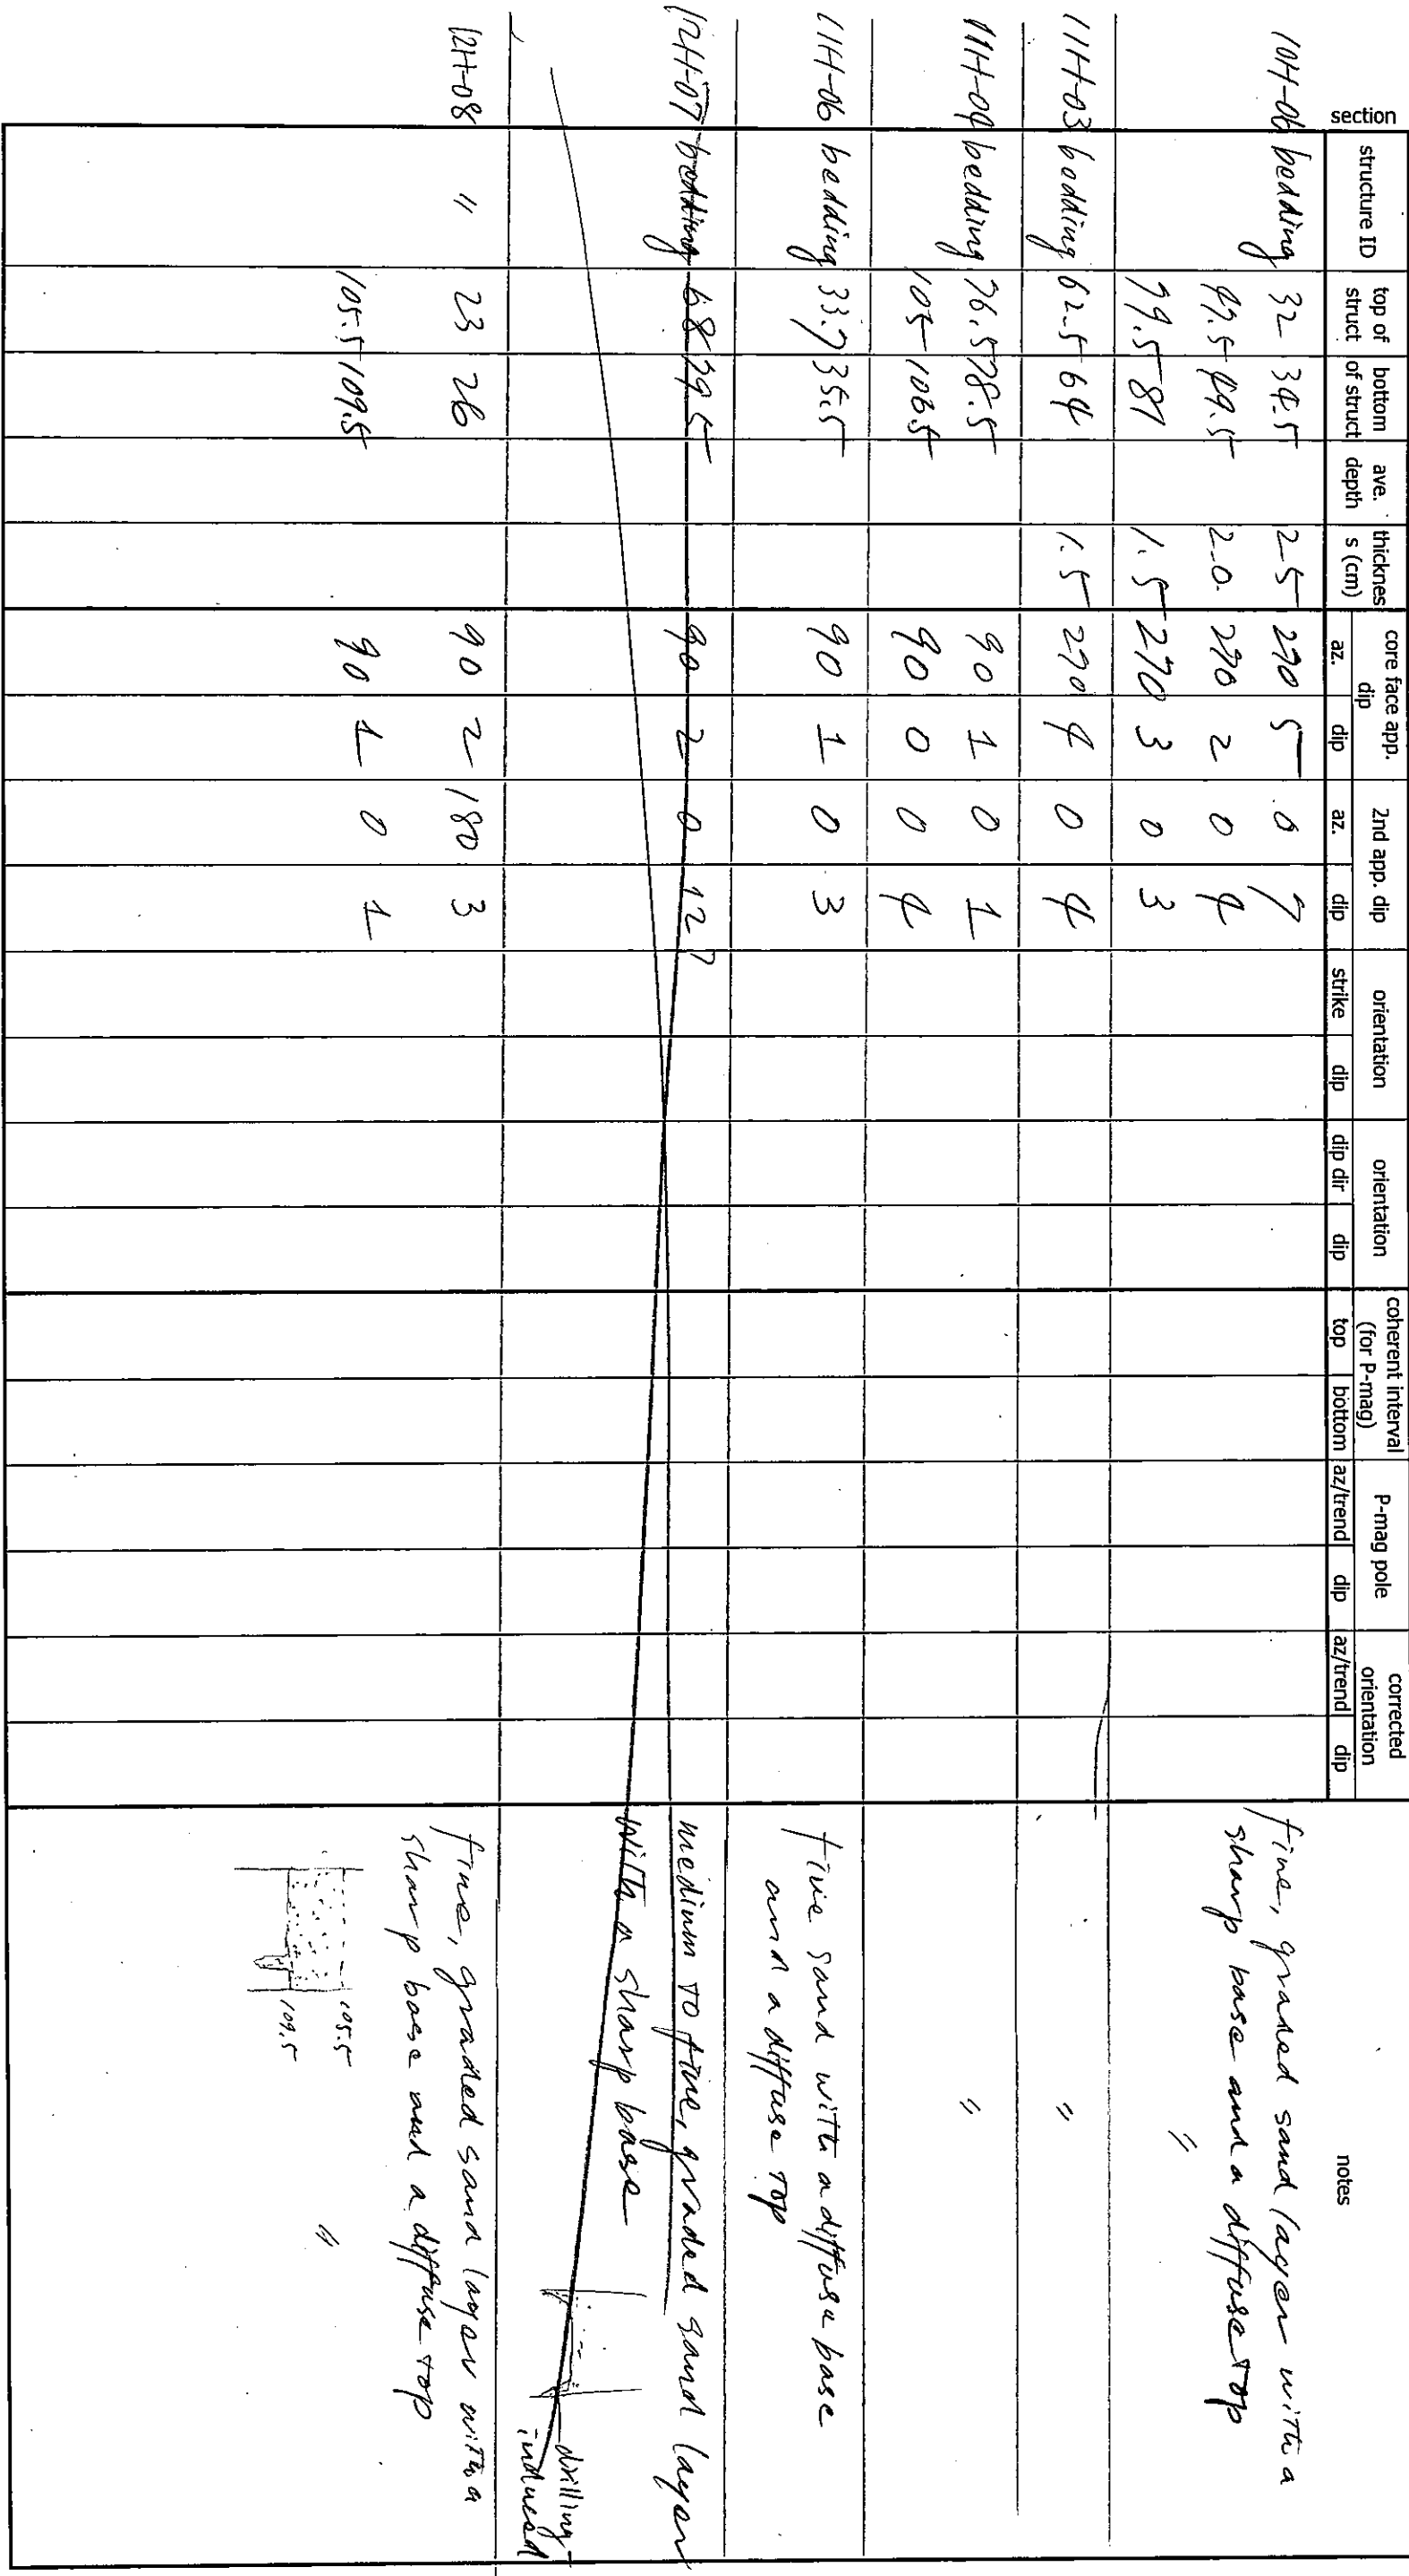 section structure ID top of struct bottom of struct ave. depth thicknes s (cm) core face app. dip az. dip 2nd app. dip az. dip orientation strike dip orientation dip dir dip coherent interval (for P-mag) top bottom P-mag pole az/trend dip corrected orientation az/trend dip notes
10H-06 bedding 32 34.5 2.5 270 5 0 7 fine, graded sand layer with a
47.5 49.5 2.0 270 2 0 4 sharp base and a diffuse top
79.5 81 1.5 270 3 0 3 "
11H-03 bedding 62.5 64 1.5 270 4 0 4 "
11H-04 bedding 76.5 78.5 90 1 0 1 "
105 106.5 90 0 0 4
11H-06 bedding 33.7 35.5 90 1 0 3 fine sand with a diffuse base
and a diffuse top
12H-07 bedding 68 79.5 90 2 0 12 ? medium to fine, graded sand layer
with a sharp base
drilling
induced
12H-08 " 23 26 90 2 180 3 fine, graded sand layer with a
sharp base and a diffuse top
105.5 109.5 90 1 0 1 "
105.5
109.5